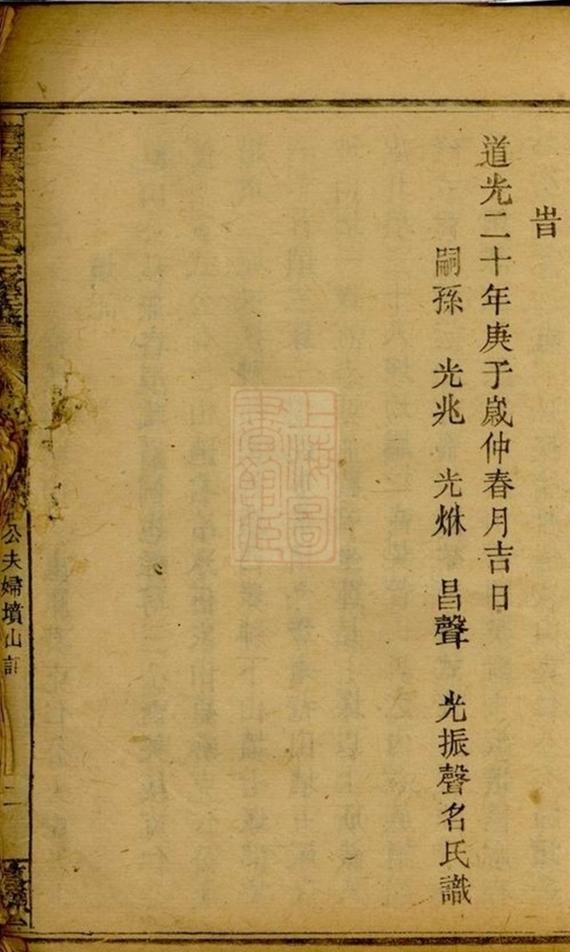 旹
道光二十年庚子歲仲春月吉日
嗣孫 光兆 光烌 昌聲 光振聲名氏識
公夫婦墳山
二
上海圖
書館藏